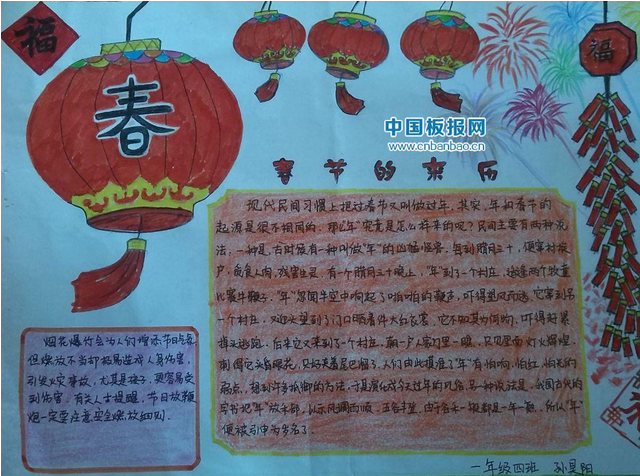 福
春
福
中国板报网
www.cnbanbao.cn
春节的来历
现代民间习惯上把过春节又叫做过年。其实，年和春节的
起源是很不相同的。那么"年"究竟是怎么样来的呢？民间主要有两种说
法：一种是，古时候有一种叫做"年"的凶猛怪兽，每到腊月三十，便窜村挨
户，觅食人肉，残害生灵。有一个腊月三十晚上，"年"到了一个村庄，适逢两个牧童
比赛牛鞭子。"年"忽闻半空中响起了啪啪的鞭声，吓得望风而逃。它窜到另
一个村庄，又迎头望到了门口晒着件大红衣裳，它不知其为何物，吓得赶紧
掉头逃跑。后来它又来到了一个村庄，朝一户人家门里一瞧，只见里面灯火辉煌，
刺得它头昏眼花，只好夹着尾巴溜了。人们由此摸准了"年"有怕响，怕红，怕光的
弱点，想到许多抵御的方法，于是演化成今天过年的风俗。另一种说法是，我国古代的
字书把"年"放禾部，以示风调雨顺，五谷丰登。由于谷禾一般都是一年一熟。所以"年"
便被引申为岁名了。
烟花爆竹会为人们增添节日气氛
但燃放不当却极易造成人身伤害，
引发火灾事故，尤其是孩子，更容易受
到伤害。有关人士提醒，节日放鞭
炮一定要注意安全燃放细则。
一年级四班 孙昊阳